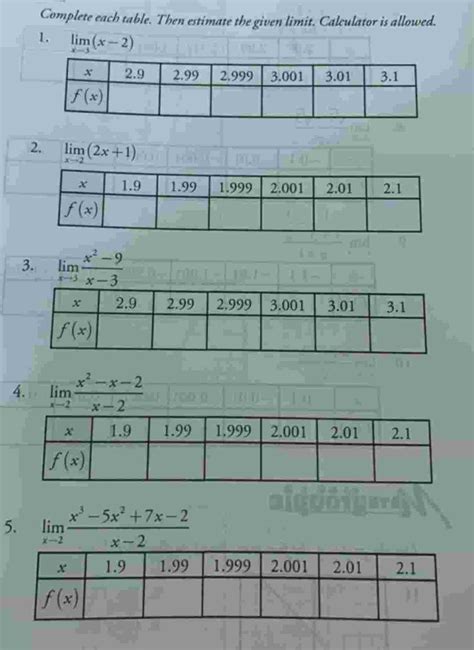 Complete each table. Then estimate the given limit. Calculator is allowed.
1. lim x→3 (x − 2)
x 2.9 2.99 2.999 3.001 3.01 3.1
f(x)
2. lim x→2 (2x + 1)
x 1.9 1.99 1.999 2.001 2.01 2.1
f(x)
3. lim x→3 (x² − 9)/(x − 3)
x 2.9 2.99 2.999 3.001 3.01 3.1
f(x)
4. lim x→2 (x² − x − 2)/(x − 2)
x 1.9 1.99 1.999 2.001 2.01 2.1
f(x)
5. lim x→2 (x³ − 5x² + 7x − 2)/(x − 2)
x 1.9 1.99 1.999 2.001 2.01 2.1
f(x)